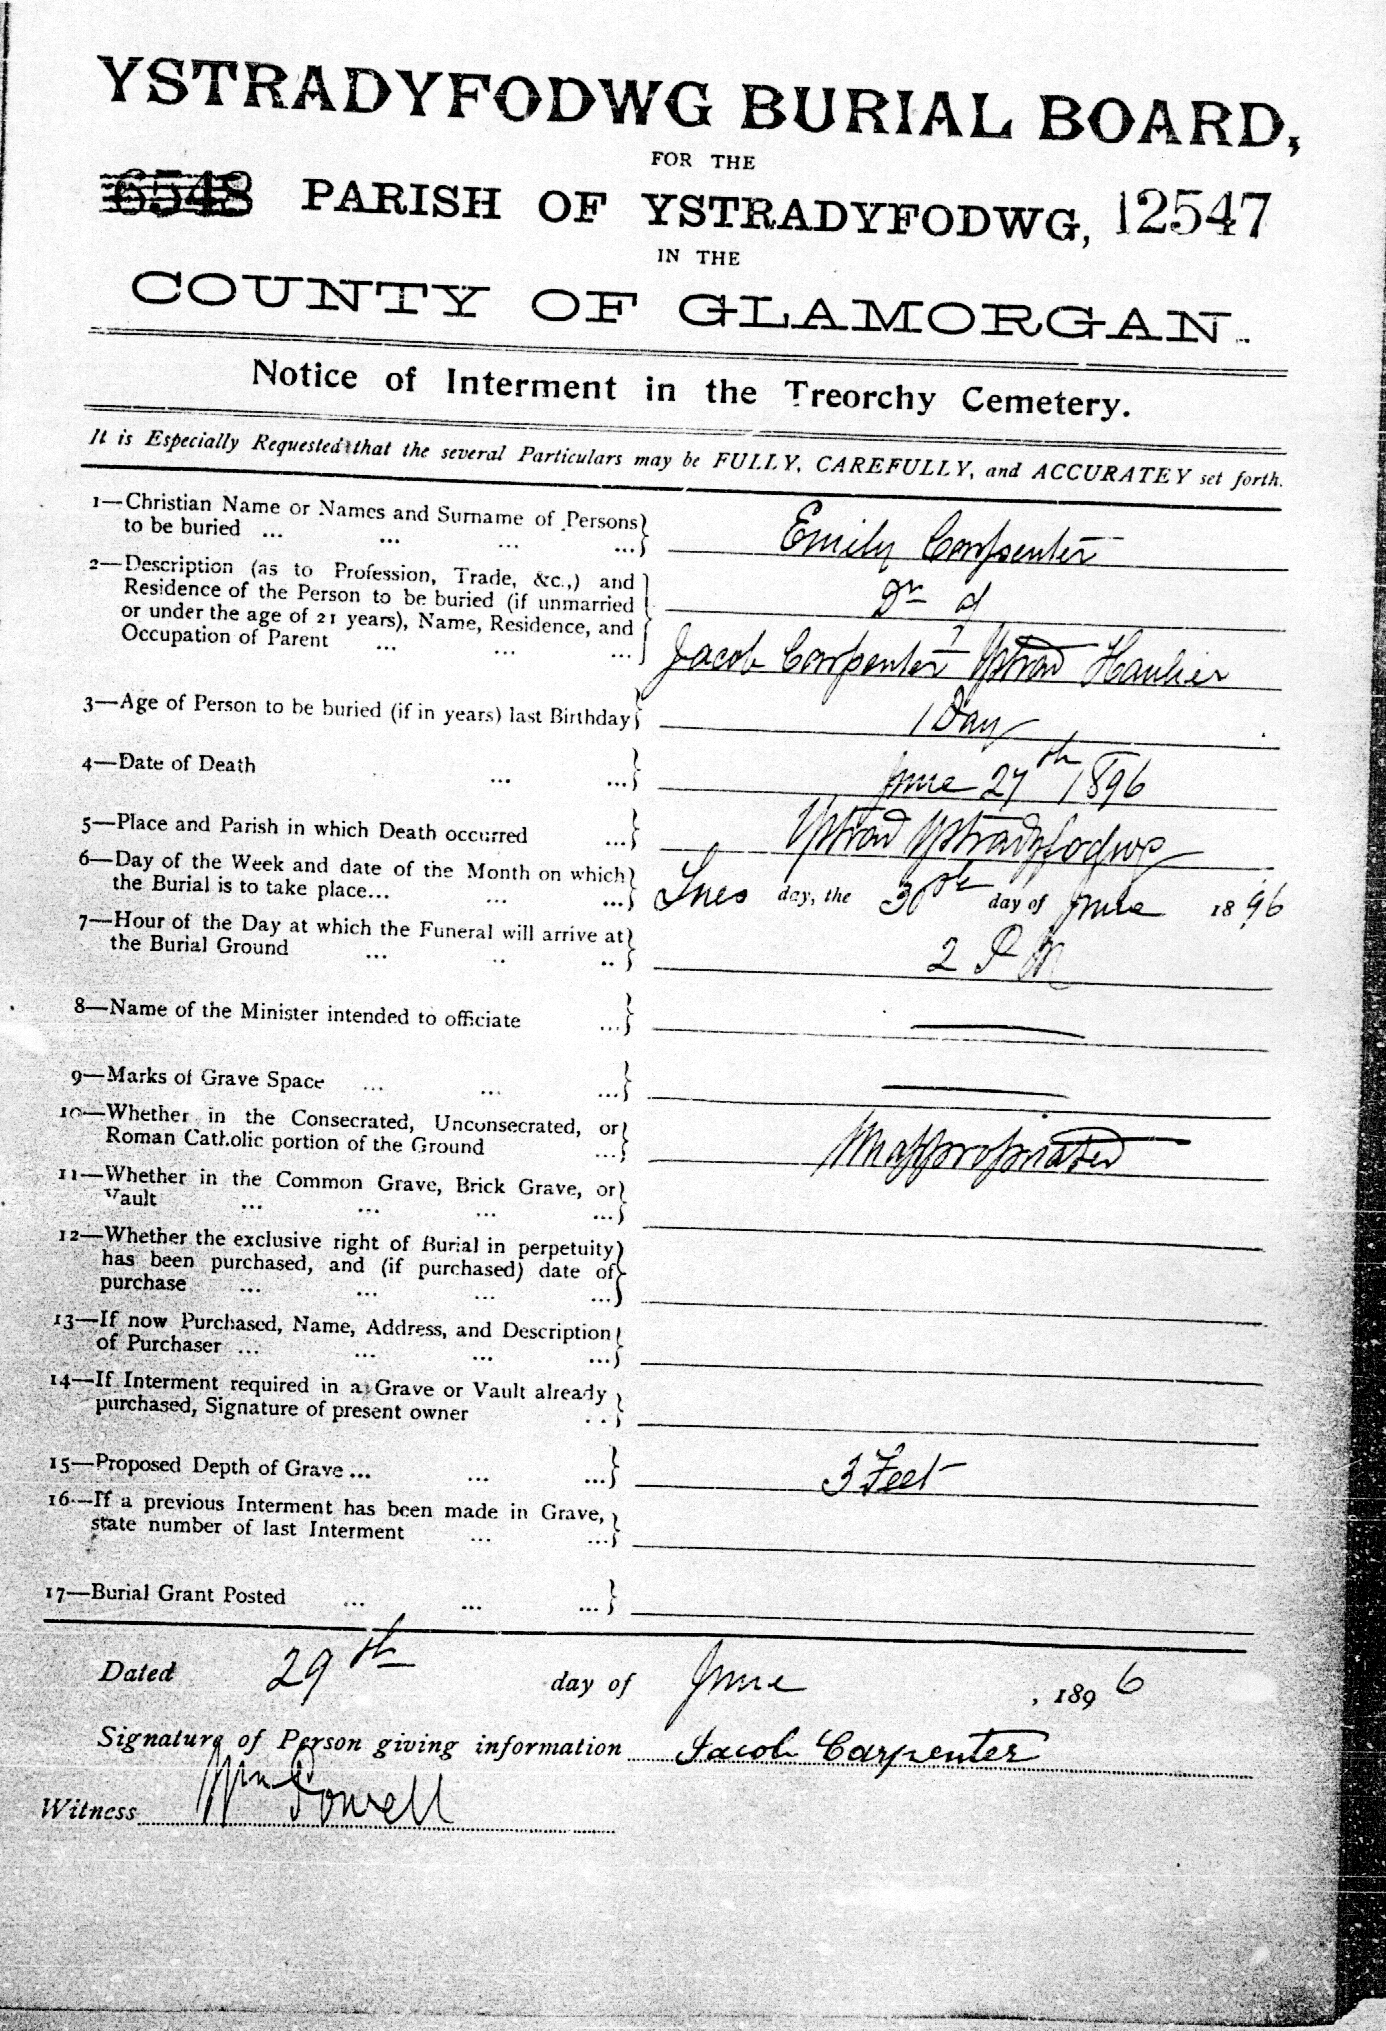 YSTRADYFODWG BURIAL BOARD,
FOR THE
6548 PARISH OF YSTRADYFODWG, 12547
IN THE
COUNTY OF GLAMORGAN.
Notice of Interment in the Treorchy Cemetery.
It is Especially Requested that the several Particulars may be FULLY, CAREFULLY, and ACCURATEY set forth.
1—Christian Name or Names and Surname of Persons
to be buried ... ... ... ...} Emily Carpenter
2—Description (as to Profession, Trade, &c.,) and
Residence of the Person to be buried (if unmarried Dr of
or under the age of 21 years), Name, Residence, and
Occupation of Parent ... ... ...} Jacob Carpenter Ystrad Haulier
3—Age of Person to be buried (if in years) last Birthday} 1 Day
4—Date of Death ... ...} June 27th 1896
5—Place and Parish in which Death occurred ...} Ystrad Ystradyfodwg
6—Day of the Week and date of the Month on which
the Burial is to take place... ... ...} Tues day, the 30th day of June 1896
7—Hour of the Day at which the Funeral will arrive at
the Burial Ground ... .. ..} 2 PM
8—Name of the Minister intended to officiate ...}
9—Marks of Grave Space ... ... ...}
10—Whether in the Consecrated, Unconsecrated, or
Roman Catholic portion of the Ground ...} Unappropriated
11—Whether in the Common Grave, Brick Grave, or
Vault ... ... ... ...}
12—Whether the exclusive right of Burial in perpetuity
has been purchased, and (if purchased) date of
purchase ... ... ... ...}
13—If now Purchased, Name, Address, and Description
of Purchaser ... ... ... ...}
14—If Interment required in a Grave or Vault already
purchased, Signature of present owner ..}
15—Proposed Depth of Grave ... ... ...} 3 Feet
16—If a previous Interment has been made in Grave,
state number of last Interment ... ...}
17—Burial Grant Posted ... ... ...}
Dated 29th day of June, 1896
Signature of Person giving information Jacob Carpenter
Witness Wm Powell